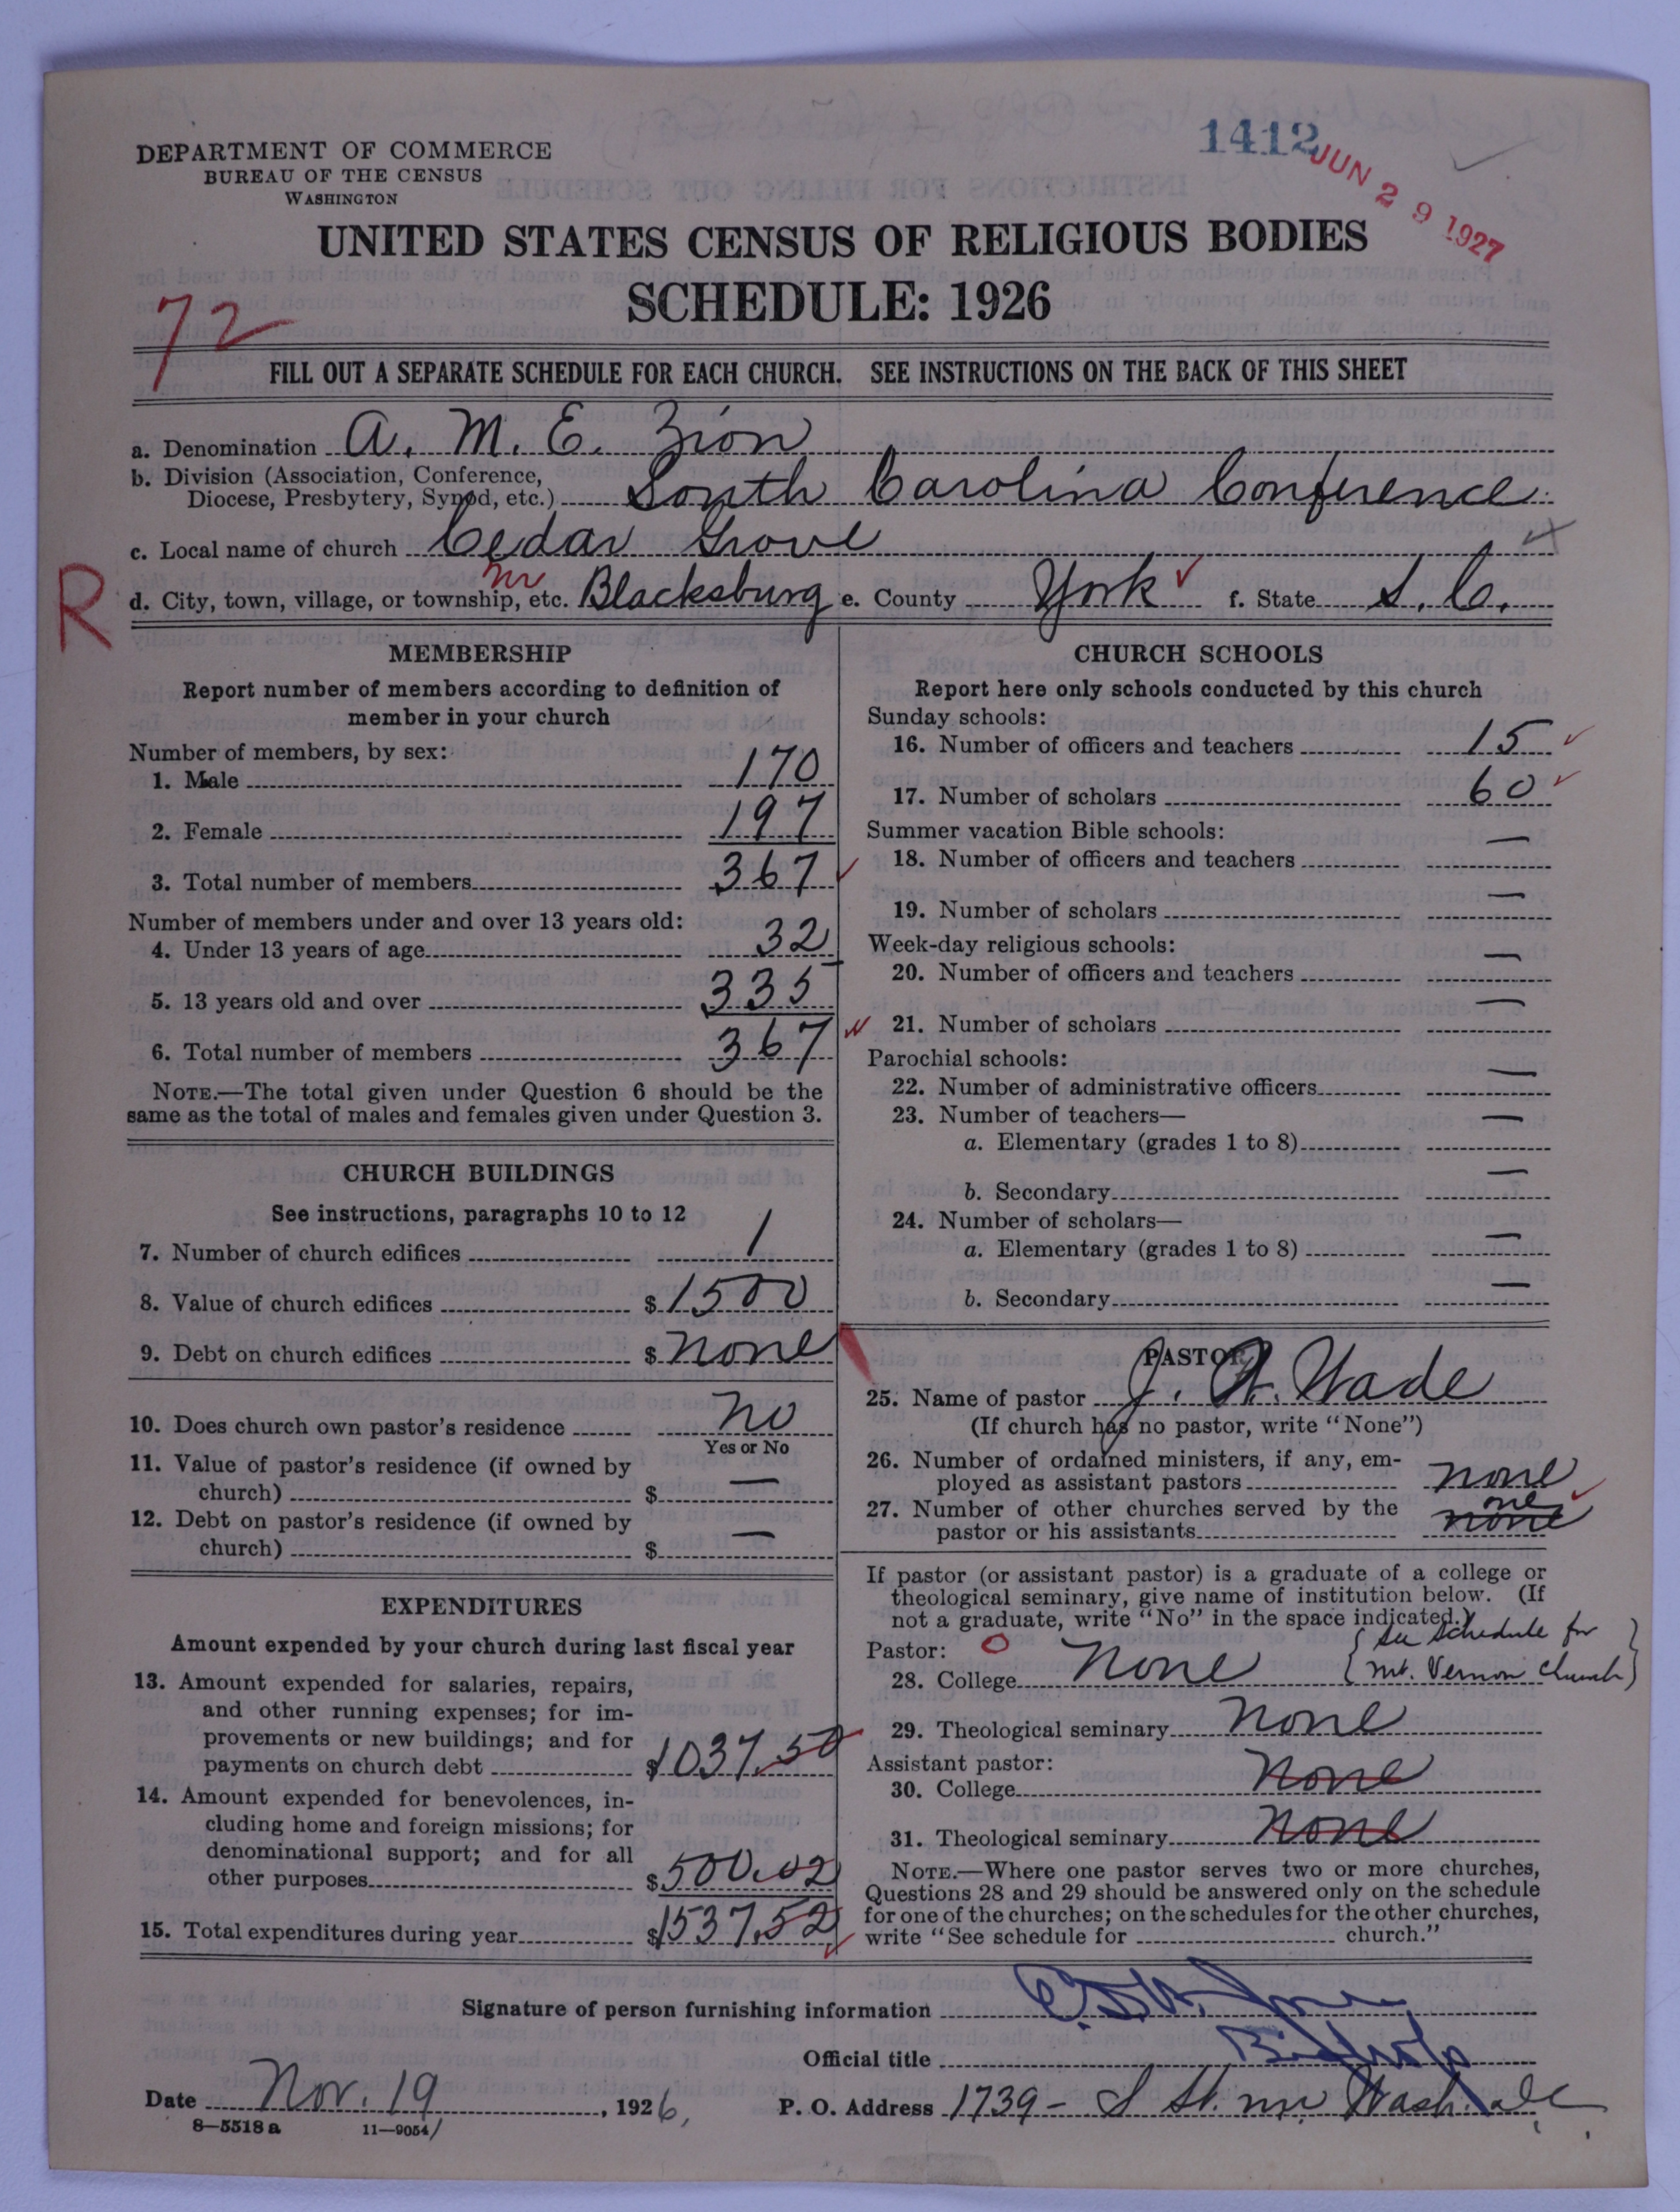 1412
JUN 29 1927
DEPARTMENT OF COMMERCE
BUREAU OF THE CENSUS
WASHINGTON
UNITED STATES CENSUS OF RELIGIOUS BODIES
SCHEDULE: 1926
72
FILL OUT A SEPARATE SCHEDULE FOR EACH CHURCH. SEE INSTRUCTIONS ON THE BACK OF THIS SHEET
a. Denomination A. M. E. Zion
b. Division (Association, Conference,
Diocese, Presbytery, Synod, etc.) South Carolina Conference
c. Local name of church Cedar Grove
R
d. City, town, village, or township, etc. nr Blacksburg e. County York f. State S. C.
MEMBERSHIP
Report number of members according to definition of
member in your church
Number of members, by sex:
1. Male 170
2. Female 197
3. Total number of members 367
Number of members under and over 13 years old:
4. Under 13 years of age 32
5. 13 years old and over 335
6. Total number of members 367
NOTE.—The total given under Question 6 should be the
same as the total of males and females given under Question 3.
CHURCH BUILDINGS
See instructions, paragraphs 10 to 12
7. Number of church edifices 1
8. Value of church edifices $1500
9. Debt on church edifices $ none
10. Does church own pastor's residence no
Yes or No
11. Value of pastor's residence (if owned by
church) $ —
12. Debt on pastor's residence (if owned by
church) $ —
EXPENDITURES
Amount expended by your church during last fiscal year
13. Amount expended for salaries, repairs,
and other running expenses; for im-
provements or new buildings; and for
payments on church debt $1037.50
14. Amount expended for benevolences, in-
cluding home and foreign missions; for
denominational support; and for all
other purposes $500.02
15. Total expenditures during year $1537.52
CHURCH SCHOOLS
Report here only schools conducted by this church
Sunday schools:
16. Number of officers and teachers 15
17. Number of scholars 60
Summer vacation Bible schools:
18. Number of officers and teachers —
19. Number of scholars —
Week-day religious schools:
20. Number of officers and teachers —
21. Number of scholars —
Parochial schools:
22. Number of administrative officers —
23. Number of teachers—
a. Elementary (grades 1 to 8) —
b. Secondary —
24. Number of scholars—
a. Elementary (grades 1 to 8) —
b. Secondary —
PASTOR
25. Name of pastor J. W. Wade
(If church has no pastor, write "None")
26. Number of ordained ministers, if any, em-
ployed as assistant pastors none
27. Number of other churches served by the
one
pastor or his assistants none
If pastor (or assistant pastor) is a graduate of a college or
theological seminary, give name of institution below. (If
not a graduate, write "No" in the space indicated.)
Pastor: O
See schedule for
28. College None mt. Vernon church
29. Theological seminary None
Assistant pastor:
30. College None
31. Theological seminary None
NOTE.—Where one pastor serves two or more churches,
Questions 28 and 29 should be answered only on the schedule
for one of the churches; on the schedules for the other churches,
write "See schedule for church."
Signature of person furnishing information
Official title Bishop
Date Nov. 19, 1926, P. O. Address 1739 - S St. nw. Wash. DC
8—5518 a 11—9054